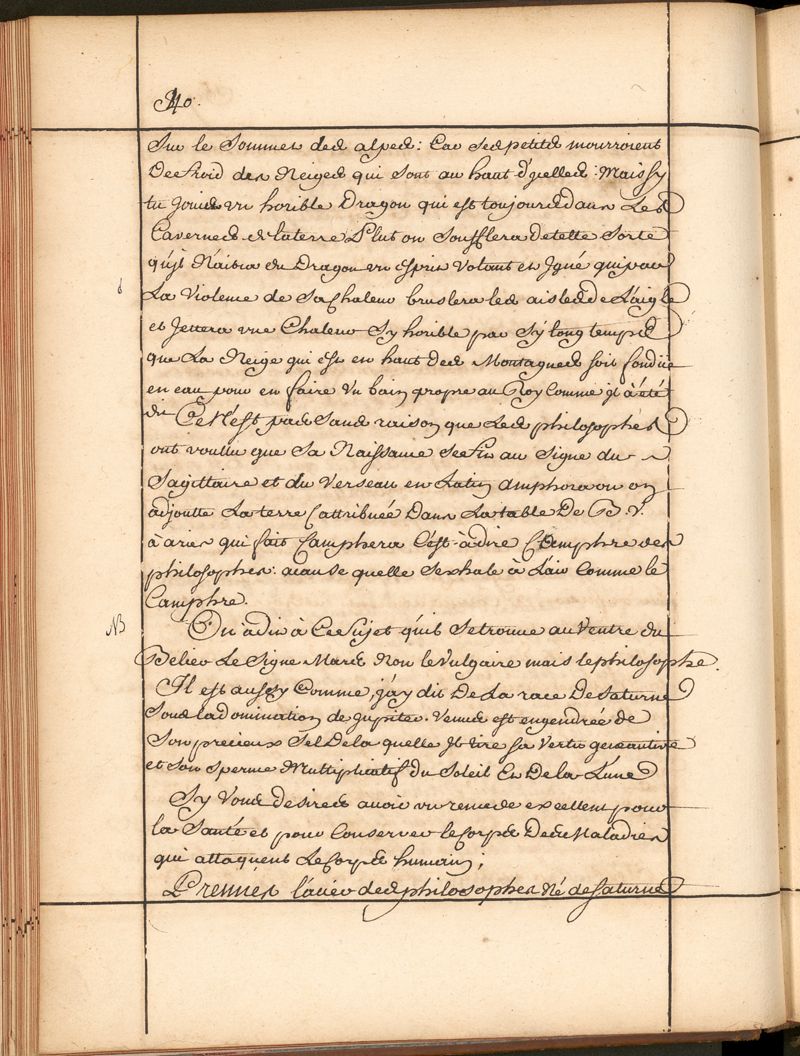 40.
Sur le Sommet des alpes: Car Ses petits mourroient
De froid des Neiges qui sont au haut d'ycelles: Mais sy
tu joins un horible Dragon qui est toujours dans Les
Cavernes de la terre Pluton Soufflera de telle Sorte
qu'jl Naitra du Dragon un esprit Volant et Jgné qui par
6
La Violence de Sa Chaleur bruslera les aisles de L'aigle
et Jettera une Chaleur Sy horible par Sy long temps
que La Neige qui est en haut des Montagnes soit fondüe
en eau pour en faire Un bain propre au Roy Comme jl à été
dit Ce N'est pas Sans raison que Les philosophes
ont voullu que Sa Naissance Se fit au Signe du
Sagittaire et du Verseau en Latin Amphora ou on
adjoutte La terre C attribuée Dans La table De B. V.
à aries qui fait Camphora C'est-à dire Camphre des
philosophes: à cause quelle S'exhale à L'air Comme le
Camphre.
NB
On à dit à Ce Sujet qu'il Se trouve au Ventre du
Belier Le Signe Mars Non le Vulgaire mais le philosophe.
Jl est aussy Comme j'ay dit De La race De Saturne
Sous la domination de Jupiter. Venus est engendrée de
Son precieux Sel De la quelle Jl tire sa Vertu
et Son Sperme Multiplicatif du Soleil Et De la Lune
Sy Vous desirez avoir un remede excellent pour
la Santé et pour Conserver le Corps Des Maladies
qui attaquent Le Corps humain;
Prennés l'acier des philosophes Né de Saturne